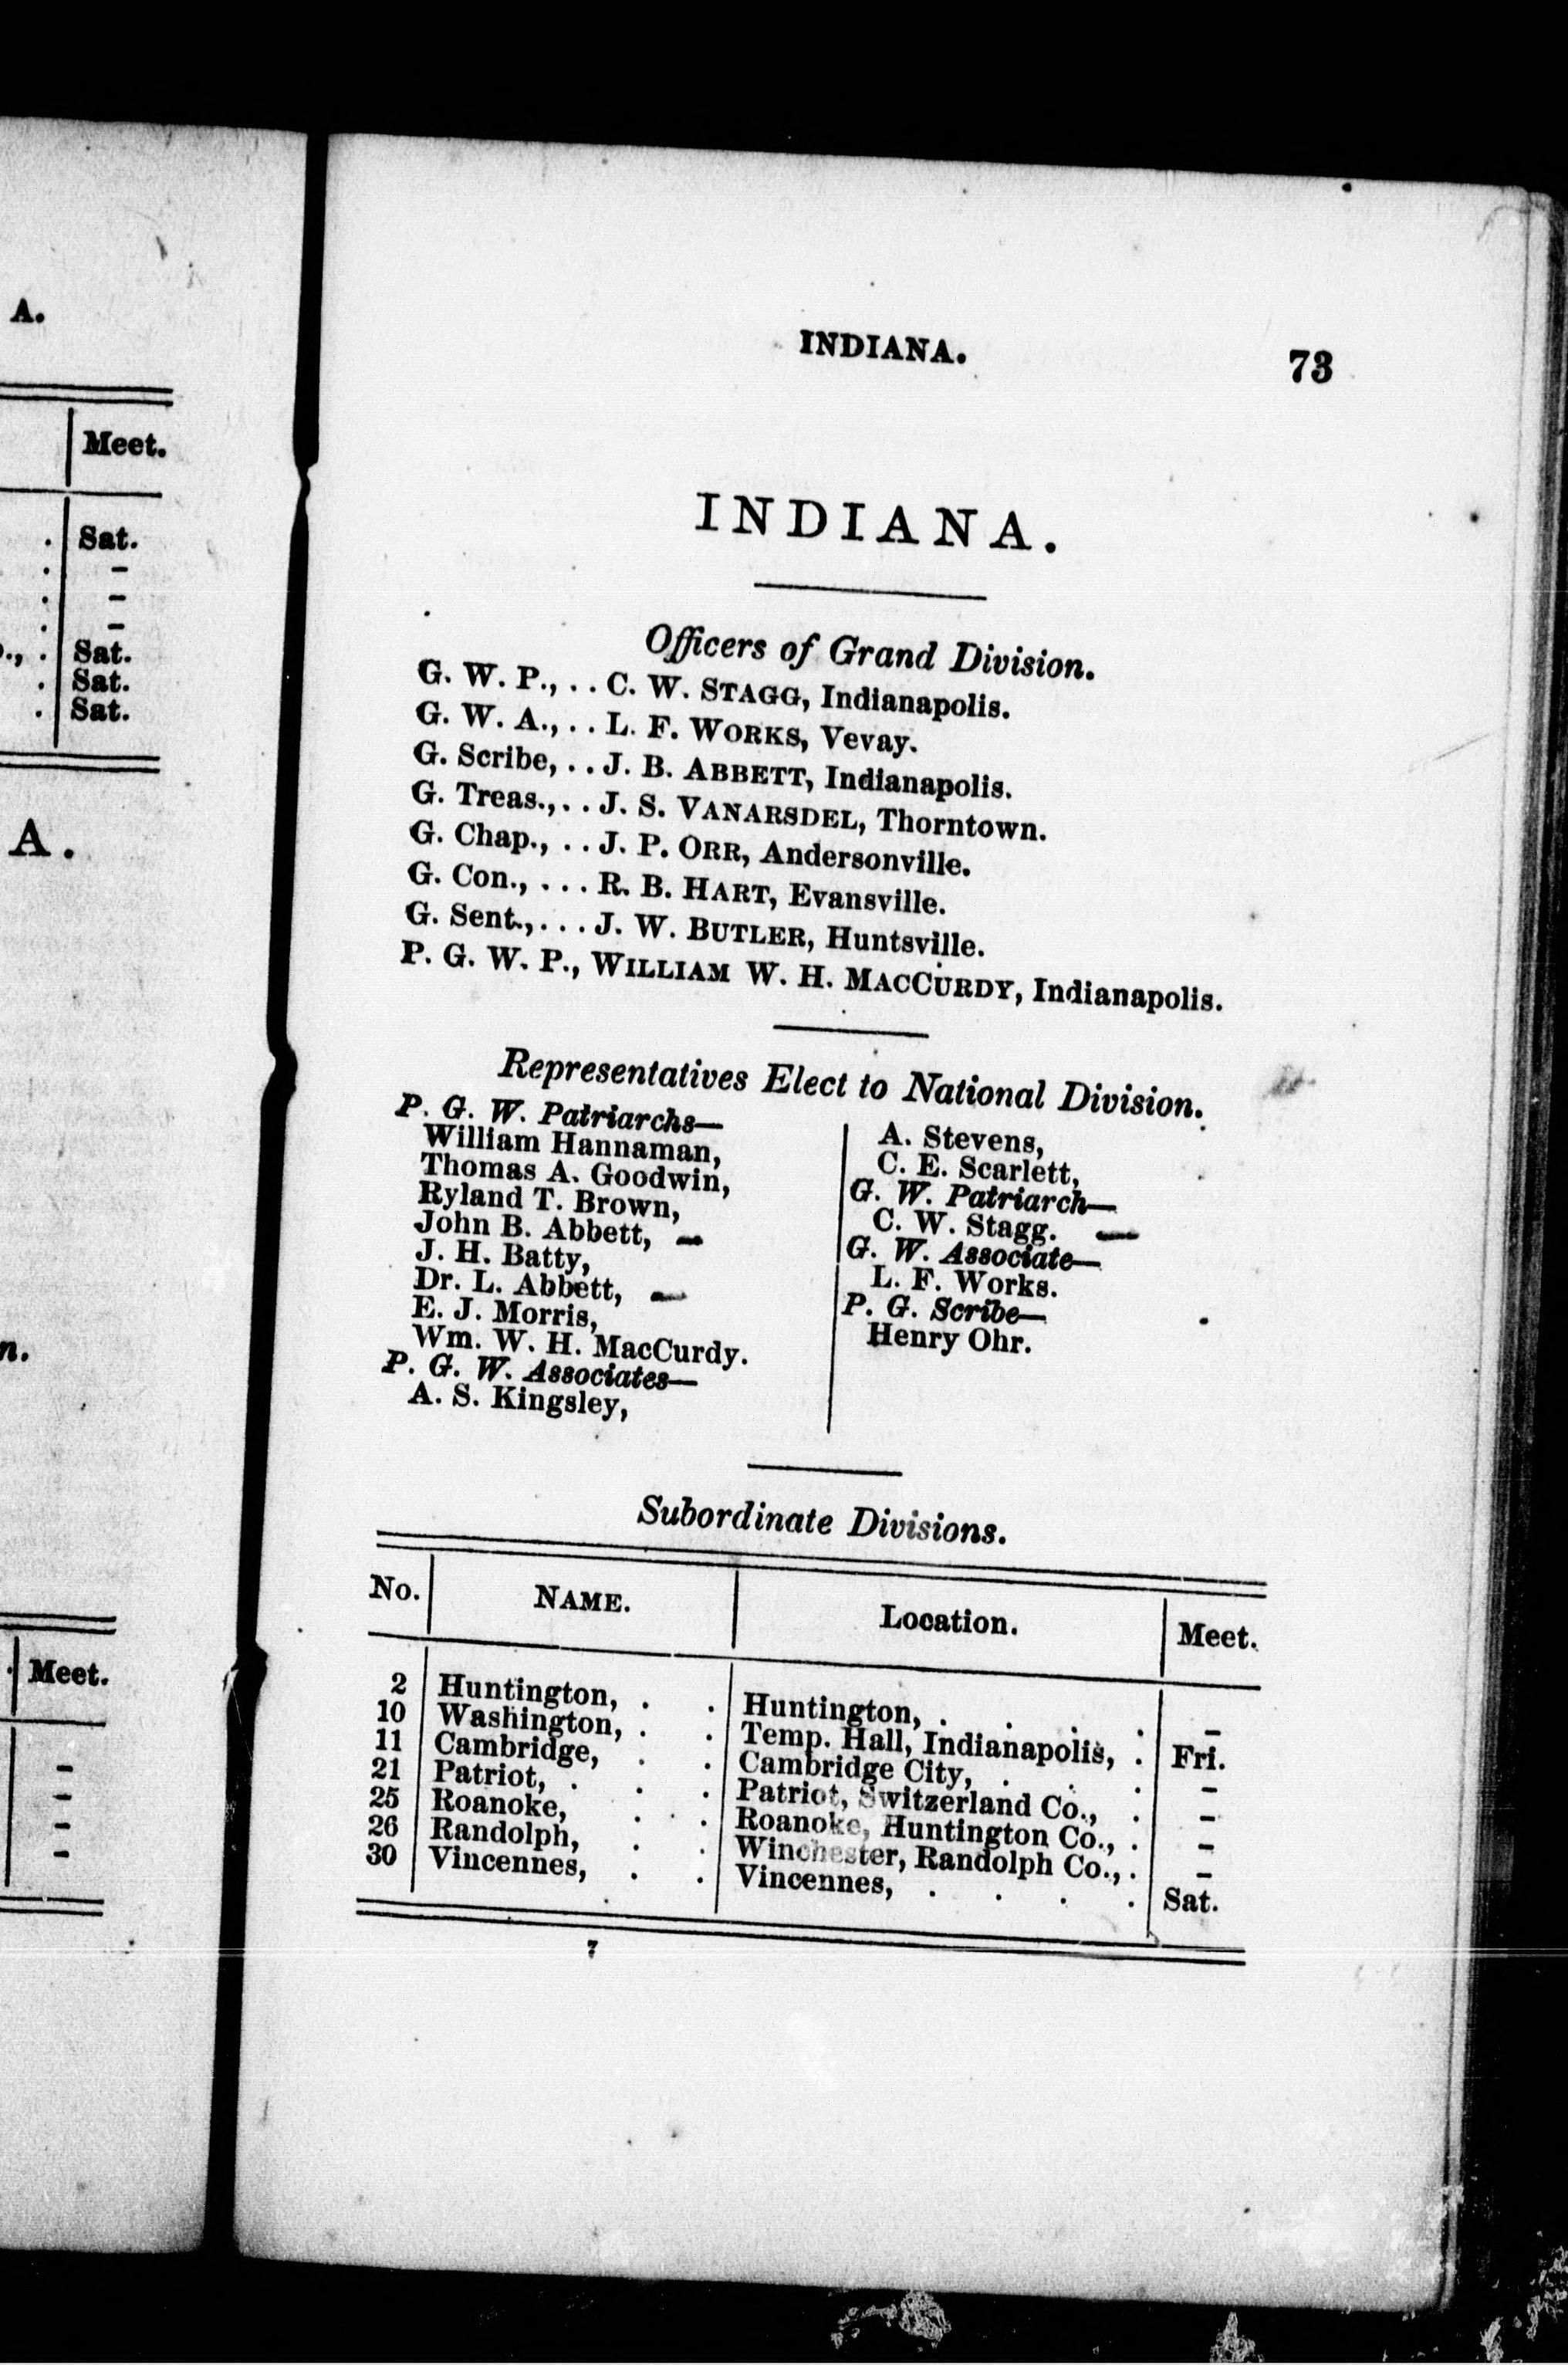 A.
Meet.
. Sat.
. -
. -
. -
., . Sat.
. Sat.
. Sat.
A.
n.
Meet.
-
-
-
-
INDIANA. 73
INDIANA.
Officers of Grand Division.
G. W. P., . . C. W. STAGG, Indianapolis.
G. W. A., . . L. F. WORKS, Vevay.
G. Scribe, . . J. B. ABBETT, Indianapolis.
G. Treas., . . J. S. VANARSDEL, Thorntown.
G. Chap., . . J. P. ORR, Andersonville.
G. Con., . . . R. B. HART, Evansville.
G. Sent., . . . J. W. BUTLER, Huntsville.
P. G. W. P., WILLIAM W. H. MACCURDY, Indianapolis.
Representatives Elect to National Division.
P. G. W. Patriarchs—
William Hannaman,
Thomas A. Goodwin,
Ryland T. Brown,
John B. Abbett,
J. H. Batty,
Dr. L. Abbett,
E. J. Morris,
Wm. W. H. MacCurdy.
P. G. W. Associates—
A. S. Kingsley,
A. Stevens,
C. E. Scarlett,
G. W. Patriarch—
C. W. Stagg.
G. W. Associate—
L. F. Works.
P. G. Scribe—
Henry Ohr.
Subordinate Divisions.
No. NAME. Location. Meet.
2 Huntington, . . Huntington, . . . . -
10 Washington, . . Temp. Hall, Indianapolis, . Fri.
11 Cambridge, . . Cambridge City, . . . -
21 Patriot, . . . Patriot, Switzerland Co., . -
25 Roanoke, . . Roanoke, Huntington Co., . -
26 Randolph, . . Winchester, Randolph Co., . -
30 Vincennes, . . Vincennes, . . . . Sat.
7